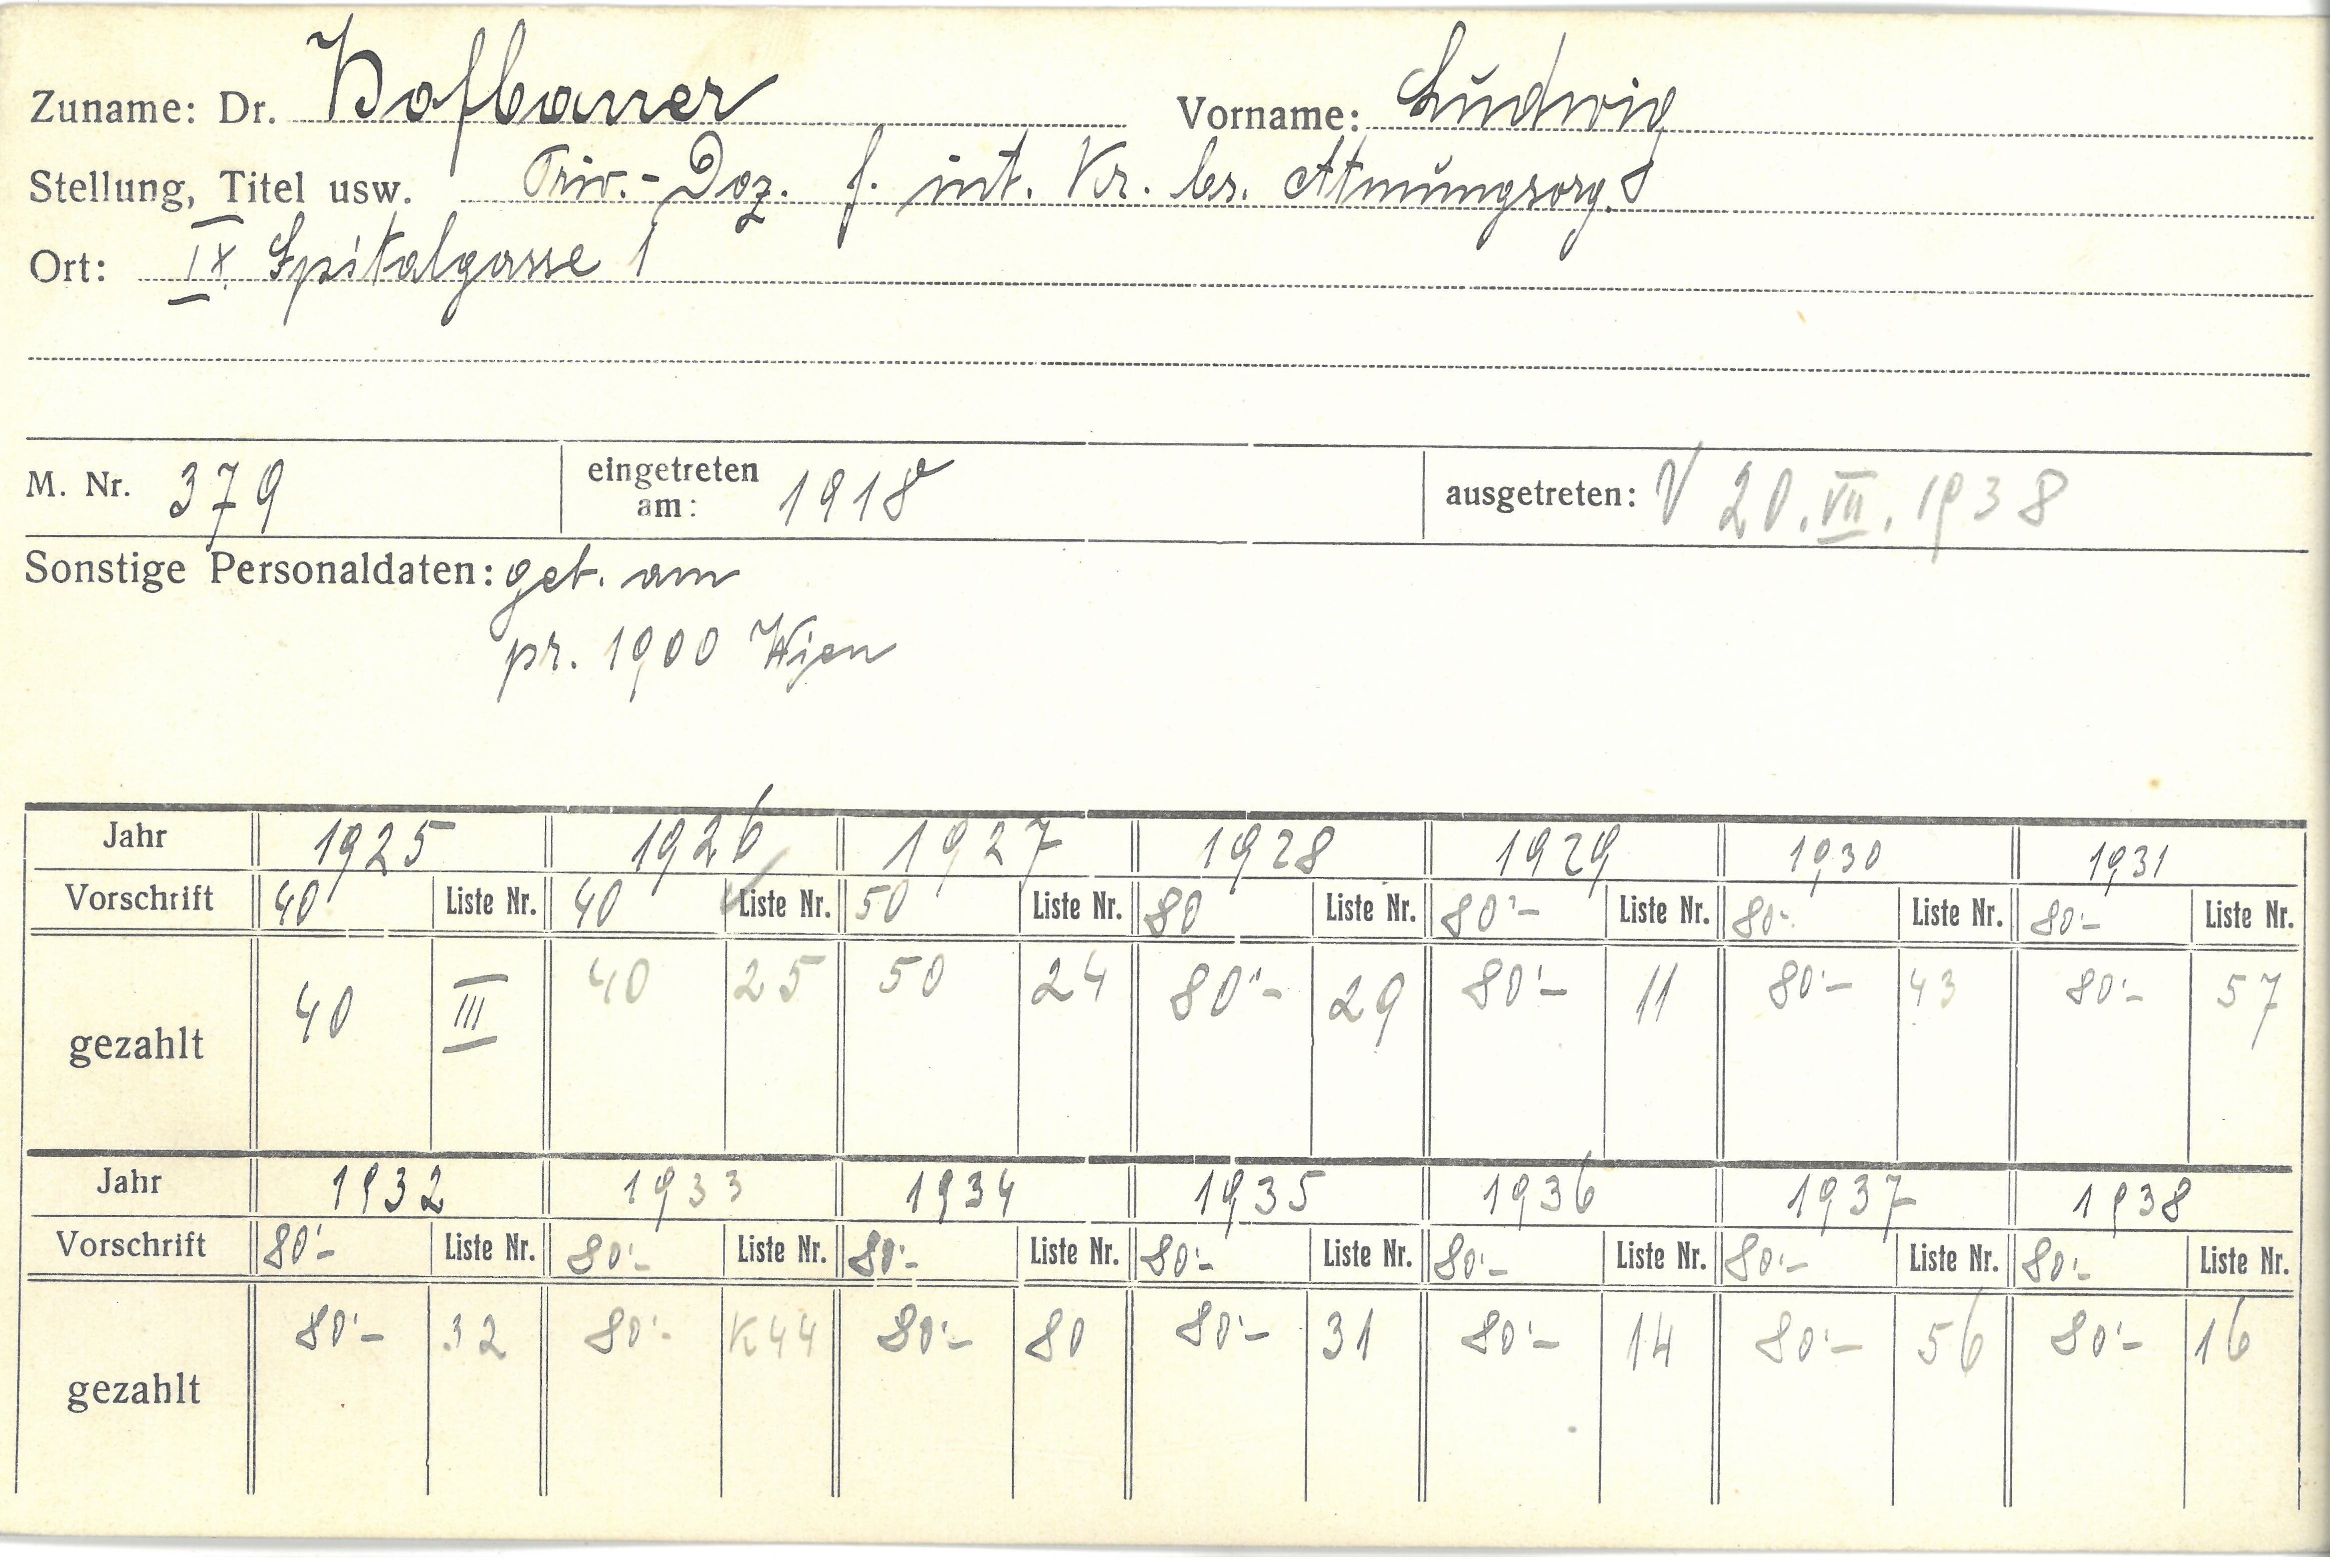 Zuname: Dr. Hofbauer Vorname: Ludwig
Stellung, Titel usw. Priv.-Doz. f. int. Kr. bs. Atmungsorg.
Ort: IX Spitalgasse 1
M. Nr. 379 eingetreten am: 1918 ausgetreten: V 20. VII. 1938
Sonstige Personaldaten: geb. am
pr. 1900 Wien
Jahr 1925 1926 1927 1928 1929 1930 1931
Vorschrift 40 Liste Nr. 40 Liste Nr. 50 Liste Nr. 80 Liste Nr. 80'- Liste Nr. 80'- Liste Nr. 80'- Liste Nr.
gezahlt 40 III 40 25 50 24 80'- 29 80'- 11 80'- 43 80'- 57
Jahr 1932 1933 1934 1935 1936 1937 1938
Vorschrift 80'- Liste Nr. 80'- Liste Nr. 80'- Liste Nr. 80'- Liste Nr. 80'- Liste Nr. 80'- Liste Nr. 80'- Liste Nr.
gezahlt 80'- 32 80'- K44 80'- 80 80'- 31 80'- 14 80'- 56 80'- 16